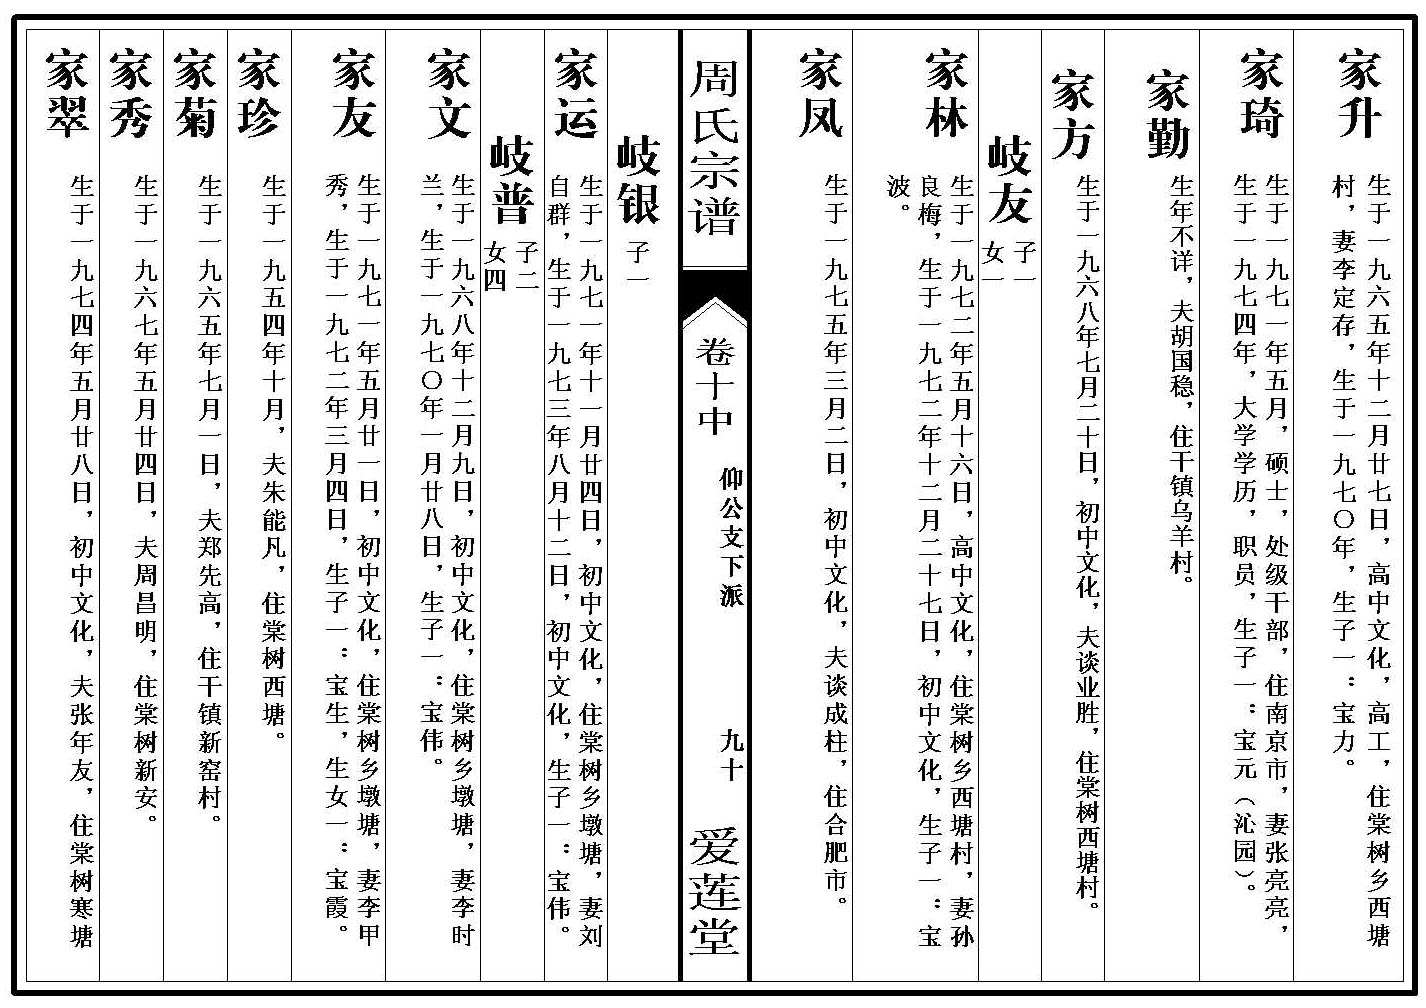 家升
生于一九六五年十二月廿七日，高中文化，高工，住棠树乡西塘
村，妻李定存，生于一九七〇年，生子一：宝力。
家琦
生于一九七一年五月，硕士，处级干部，住南京市，妻张亮亮，
生于一九七四年，大学学历，职员，生子一：宝元（沁园）。
家勤
生年不详，夫胡国稳，住干镇乌羊村。
家方
生于一九六八年七月二十日，初中文化，夫谈业胜，住棠树西塘村。
岐友
子一
女一
家林
生于一九七二年五月十六日，高中文化，住棠树乡西塘村，妻孙
良梅，生于一九七二年十二月二十七日，初中文化，生子一：宝
波。
家凤
生于一九七五年三月二日，初中文化，夫谈成柱，住合肥市。
周氏宗谱
卷十中
仰公支下派
九十
爱莲堂
岐银
子一
家运
生于一九七一年十一月廿四日，初中文化，住棠树乡墩塘，妻刘
自群，生于一九七三年八月十二日，初中文化，生子一：宝伟。
岐普
子二
女四
家文
生于一九六八年十二月九日，初中文化，住棠树乡墩塘，妻李时
兰，生于一九七〇年一月廿八日，生子一：宝伟。
家友
生于一九七一年五月廿一日，初中文化，住棠树乡墩塘，妻李甲
秀，生于一九七二年三月四日，生子一：宝生，生女一：宝霞。
家珍
生于一九五四年十月，夫朱能凡，住棠树西塘。
家菊
生于一九六五年七月一日，夫郑先高，住干镇新窑村。
家秀
生于一九六七年五月廿四日，夫周昌明，住棠树新安。
家翠
生于一九七四年五月廿八日，初中文化，夫张年友，住棠树寒塘